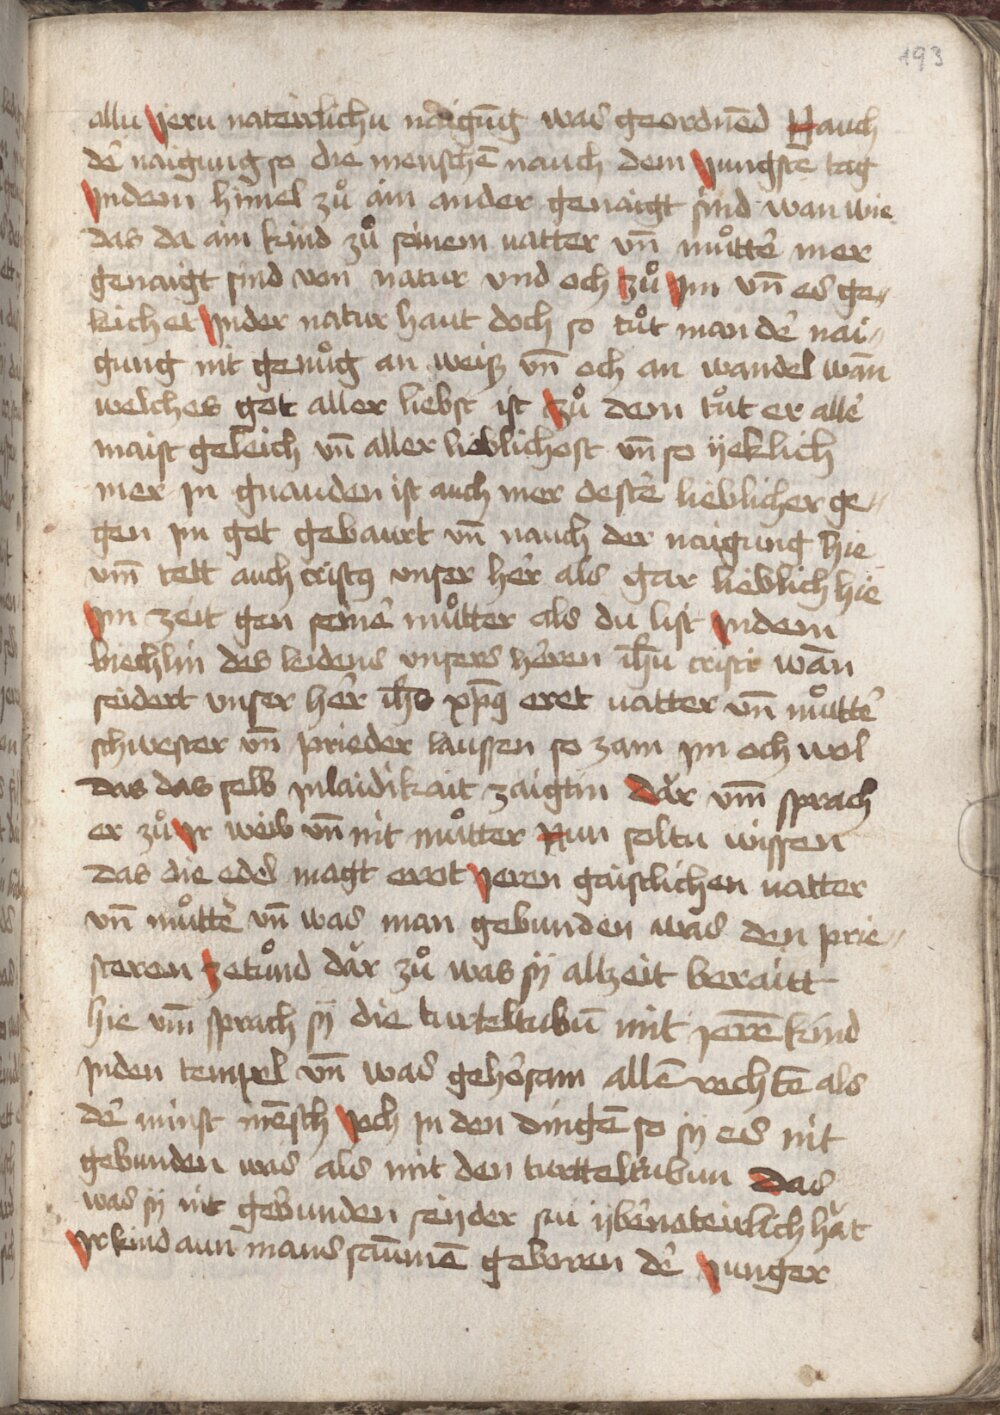 193
allu yeru natẻrlichu naigūg was geordnēd Nauch
dē naigung so die menschē nauch dem yungste tag
yn dem himel zů ain ander genaigt sind wan wie
das da ain kind zů seinem vatter vn̄ můttē mer
genaigt sind von natur vnd och zů ym vn̄ es ge-
leichet yn der natur haut doch so tůt man dē nai-
gung nit genůg an weiß vn̄ och an wandel wān
welches got aller liebst ist zů dem tůt er allē
maist geleich vn̄ aller lieblichost vn̄ so yeklich
mer yn gnauden ist auch mer destē lieblicher ge-
gen ym got gebaurt vn̄ nauch der naigung hie
vm̄ tett auch cristꝰ vnser hēr als gar lieblich hie
ym zeit gen seinē můtter als du list yn dem
biechlin des leidens vnsers hēren ih̄u cristi wān
seidert vnser hēr ih̄s xp̄ꝰ eret vatter vn̄ můttē
schwester vn̄ prieder laussen so zam ym och wol
das das selb ynlaidikait zaigtin dăr vm̄ sprach
er zů yr weib vn̄ nit můtter Nun soltu wissen
das die edel magt eret yeren gaistlichen vatter
vn̄ můttē vn̄ was man gebunden was den prie-
steren zetůnd dăr zů was sÿ allzeit beraitt
hie vm̄ sprach sÿ die turteltubū mit yerē kind
yn den tempel vn̄ was gehòrsam allē rechtē als
dē minst mēsch yoch yn den dingē so sy es nit
gebunden was als mit den turtteltubun Das
was sÿ nit gebunden seyder su ÿbēnateirlich hăt
yr kind aun mans saūmē geboren dē yunger